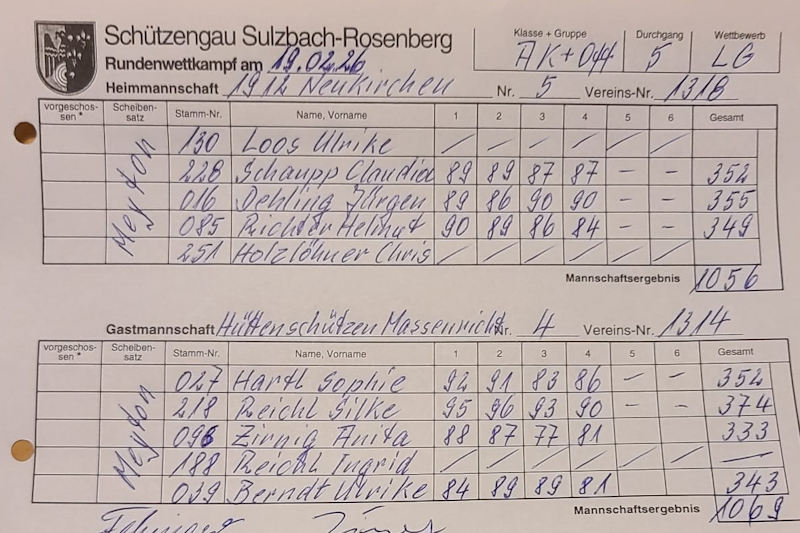 Schützengau Sulzbach-Rosenberg
Klasse + Gruppe Durchgang Wettbewerb
AK+OH 5 LG
Rundenwettkampf am 19.02.26
Heimmannschaft 1912 Neukirchen Nr. 5 Vereins-Nr. 1318
vorgeschos-sen * Scheiben-satz Stamm-Nr. Name, Vorname 1 2 3 4 5 6 Gesamt
Meyton
130 Loos Ulrike / / / / / /
228 Schaupp Claudia 89 89 87 87 – – 352
016 Dehling Jürgen 89 86 90 90 – – 355
085 Richter Helmut 90 89 86 84 – – 349
251 Holzlöhner Chris / / / / / /
Mannschaftsergebnis 1056
Gastmannschaft Hüttenschützen Massenricht Nr. 4 Vereins-Nr. 1314
vorgeschos-sen * Scheiben-satz Stamm-Nr. Name, Vorname 1 2 3 4 5 6 Gesamt
Meyton
027 Hartl Sophie 92 91 83 86 – – 352
218 Reichl Silke 95 96 93 90 – – 374
096 Zirnig Anita 88 87 77 81 333
188 Reichl Ingrid / / / / / / —
039 Berndt Ulrike 84 89 89 81 343
Mannschaftsergebnis 1069